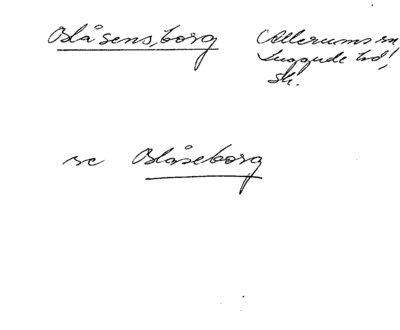 Blåsensborg (Allerums sn
Luggude hd,
Sk.
se Blåseborg